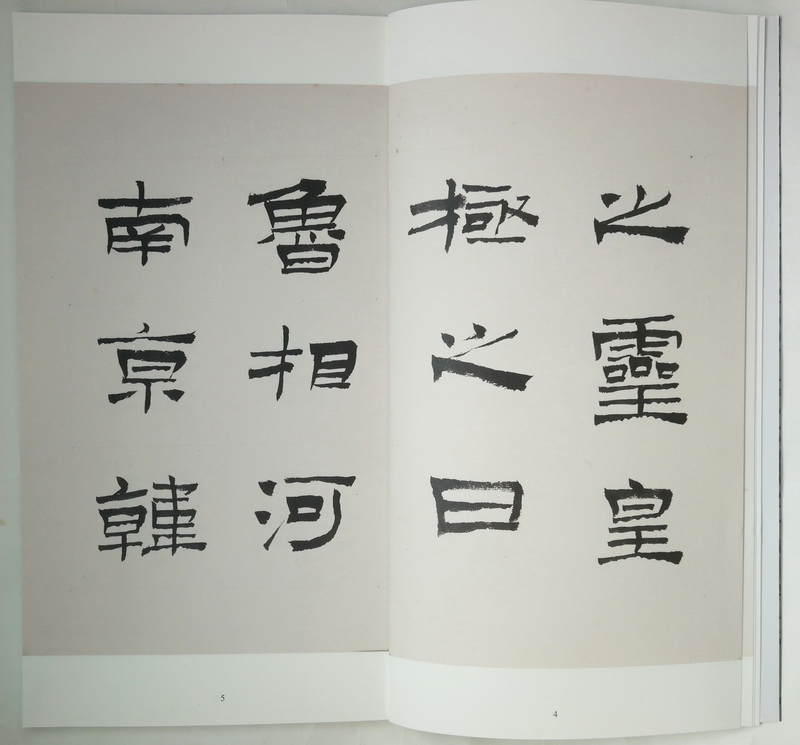 之靈皇
極之日
4
魯相河
南京韓
5